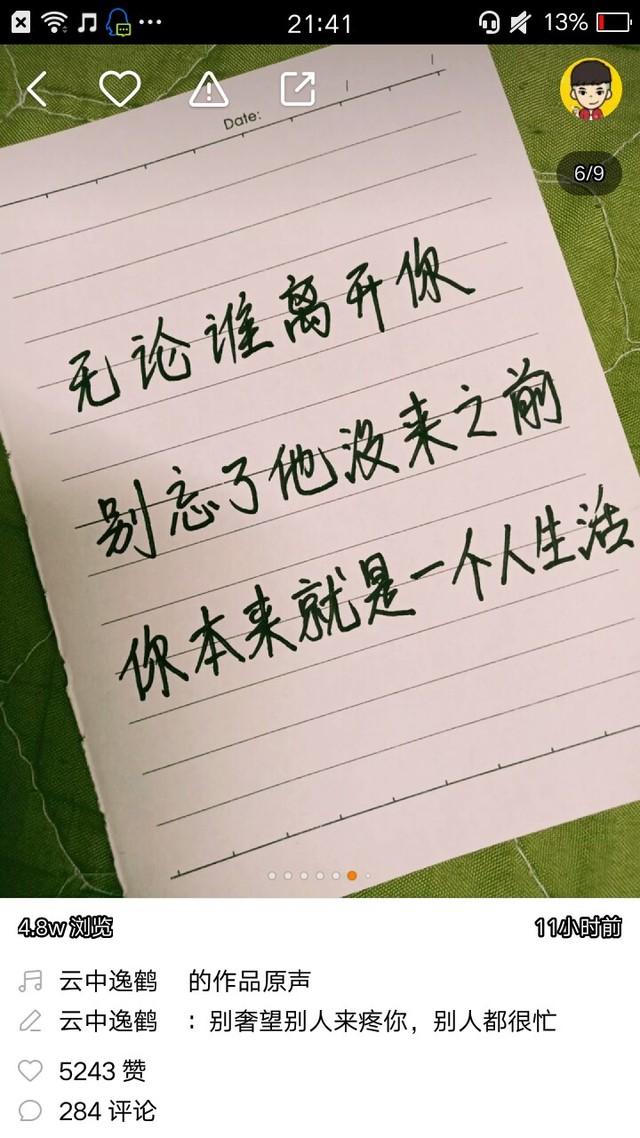 21:41
13%
Date:
6/9
无论谁离开你
别忘了他没来之前
你本来就是一个人生活
4.8w 浏览
11小时前
云中逸鹤 的作品原声
云中逸鹤 ：别奢望别人来疼你，别人都很忙
5243 赞
284 评论